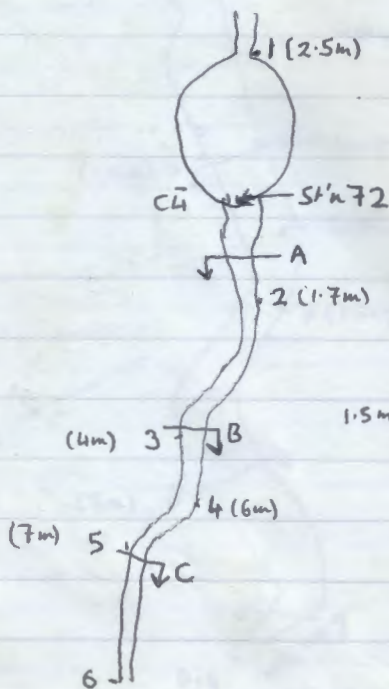 1 (2.5m)
C4 St'n 72
A
2 (1.7m)
1.5m
(4m) 3 B
4 (6m)
(7m) 5
C
6